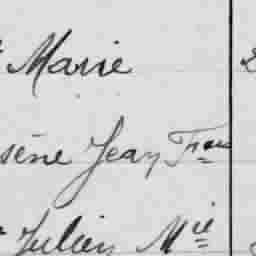 Marie
sène Jean Fçois
Julien Mie